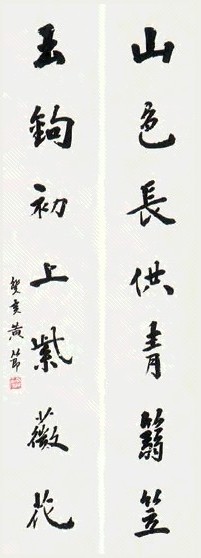 山色長供青篛笠
玉鉤初上紫薇花
癸亥黃節